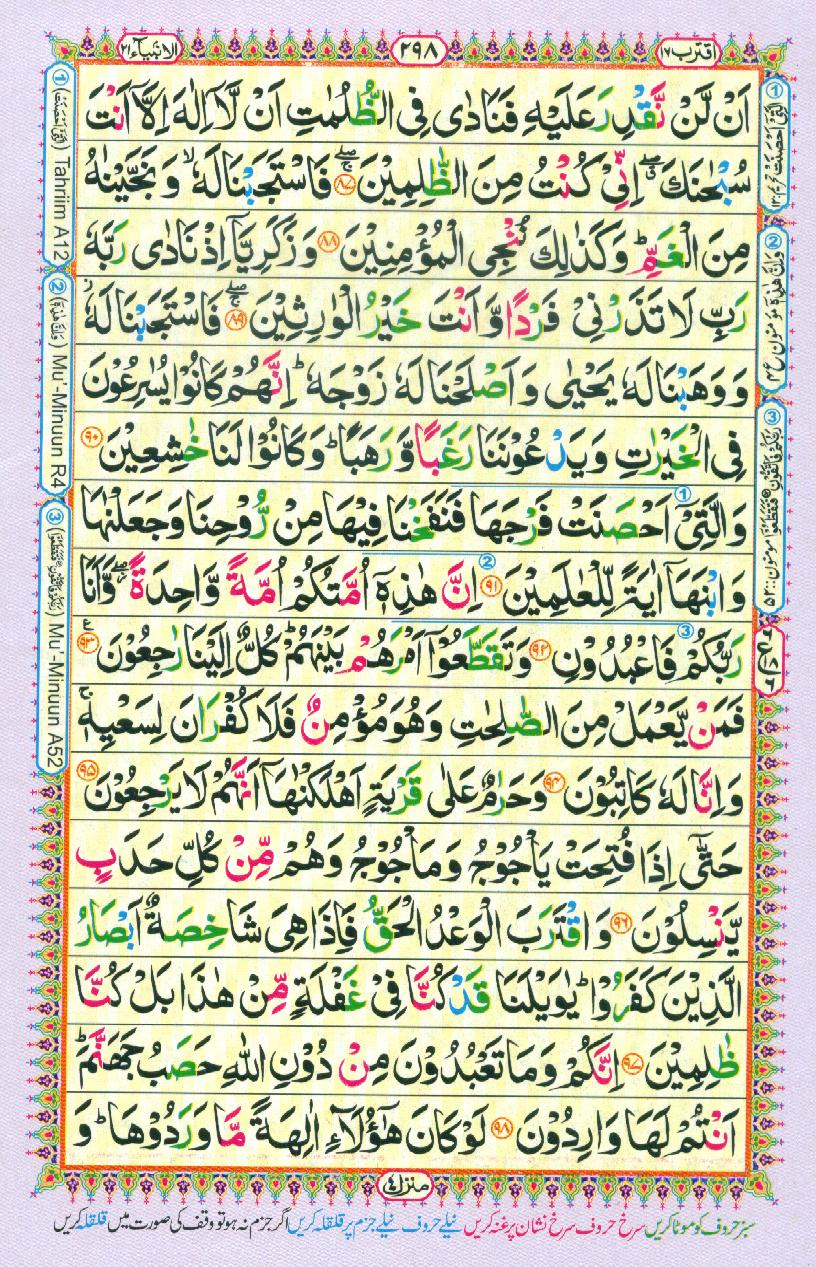 اقترب ١٧
٢٩٨
الانبیآء ٢١
اَنْ لَّنْ نَّقْدِرَ عَلَیْهِ فَنَادٰی فِی الظُّلُمٰتِ اَنْ لَّاۤ اِلٰهَ اِلَّاۤ اَنْتَ
سُبْحٰنَكَ ۖۗ اِنِّیْ كُنْتُ مِنَ الظّٰلِمِیْنَ ۚۖ ﴿٨٧﴾ فَاسْتَجَبْنَا لَهٗ ۙ وَ نَجَّیْنٰهُ
مِنَ الْغَمِّ ؕ وَ كَذٰلِكَ نُـنْجِی الْمُؤْمِنِیْنَ ﴿٨٨﴾ وَ زَكَرِیَّاۤ اِذْ نَادٰی رَبَّهٗ
رَبِّ لَا تَذَرْنِیْ فَرْدًا وَّ اَنْتَ خَیْرُ الْوٰرِثِیْنَ ۚۖ ﴿٨٩﴾ فَاسْتَجَبْنَا لَهٗ ؗ
وَ وَهَبْنَا لَهٗ یَحْیٰی وَ اَصْلَحْنَا لَهٗ زَوْجَهٗ ؕ اِنَّهُمْ كَانُوْا یُسٰرِعُوْنَ
فِی الْخَیْرٰتِ وَ یَدْعُوْنَنَا رَغَبًا وَّ رَهَبًا ؕ وَ كَانُوْا لَنَا خٰشِعِیْنَ ﴿٩٠﴾
وَ الَّتِیْۤ اَحْصَنَتْ فَرْجَهَا فَنَفَخْنَا فِیْهَا مِنْ رُّوْحِنَا وَ جَعَلْنٰهَا
وَ ابْنَهَاۤ اٰیَةً لِّلْعٰلَمِیْنَ ﴿٩١﴾ اِنَّ هٰذِهٖۤ اُمَّتُكُمْ اُمَّةً وَّاحِدَةً ۖؗ وَّ اَنَا
رَبُّكُمْ فَاعْبُدُوْنِ ﴿٩٢﴾ وَ تَقَطَّعُوْۤا اَمْرَهُمْ بَیْنَهُمْ ؕ كُلٌّ اِلَیْنَا رٰجِعُوْنَ ﴿٩٣﴾
فَمَنْ یَّعْمَلْ مِنَ الصّٰلِحٰتِ وَ هُوَ مُؤْمِنٌ فَلَا كُفْرَانَ لِسَعْیِهٖ ۚ
وَ اِنَّا لَهٗ كَاتِبُوْنَ ﴿٩٤﴾ وَ حَرٰمٌ عَلٰی قَرْیَةٍ اَهْلَكْنٰهَاۤ اَنَّهُمْ لَا یَرْجِعُوْنَ ﴿٩٥﴾
حَتّٰۤی اِذَا فُتِحَتْ یَاْجُوْجُ وَ مَاْجُوْجُ وَ هُمْ مِّنْ كُلِّ حَدَبٍ
یَّنْسِلُوْنَ ﴿٩٦﴾ وَ اقْتَرَبَ الْوَعْدُ الْحَقُّ فَاِذَا هِیَ شَاخِصَةٌ اَبْصَارُ
الَّذِیْنَ كَفَرُوْا ؕ یٰوَیْلَنَا قَدْ كُنَّا فِیْ غَفْلَةٍ مِّنْ هٰذَا بَلْ كُنَّا
ظٰلِمِیْنَ ﴿٩٧﴾ اِنَّكُمْ وَ مَا تَعْبُدُوْنَ مِنْ دُوْنِ اللّٰهِ حَصَبُ جَهَنَّمَ ؕ
اَنْتُمْ لَهَا وَارِدُوْنَ ﴿٩٨﴾ لَوْ كَانَ هٰۤؤُلَآءِ اٰلِهَةً مَّا وَرَدُوْهَا ؕ وَ
منزل ٤
سبز حروف کو موٹا کریں سرخ حروف سرخ نشان پر غنہ کریں نیلے حروف نیلے جزم پر قلقلہ کریں اگر جزم نہ ہو تو وقف کی صورت میں قلقلہ کریں
① Tahriim A12
② Mu'-Minuun R4
③ Mu'-Minuun A52